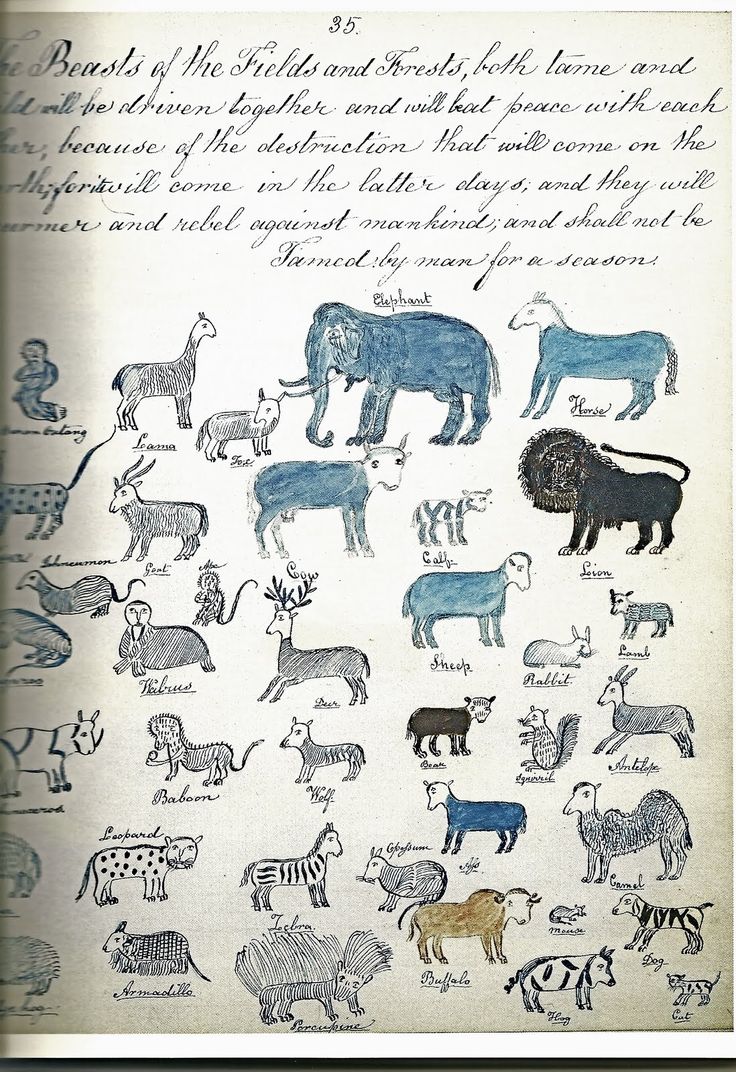 35.
The Beasts of the Fields and Forests, both tame and
ild will be driven together and will be at peace with each
her, because of the destruction that will come on the
rth; for it will come in the latter days; and they will
urmer and rebel against mankind; and shall not be
Tamed by man for a season.
Elephant
Horse
Outang
Lama
Fox
Goat
Ichneumon
Ape
Cow
Calf
Lion
Walrus
Deer
Sheep
Rabbit
Lamb
Baboon
Wolf
Bear
Squirril
Antelope
Leopard
Zebra
Opossum
Ass
Camel
Armadillo
Porcupine
Buffalo
Mouse
Dog
Hog
Cat